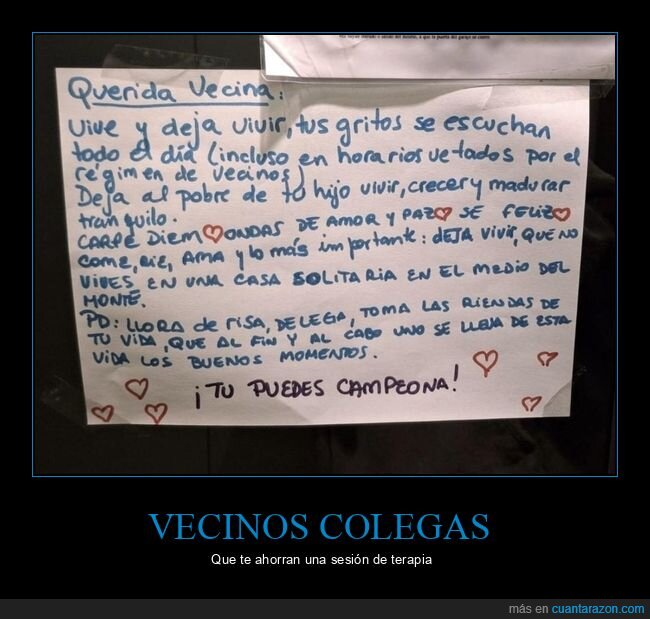 Querida Vecina:
Vive y deja vivir, tus gritos se escuchan
todo el día (incluso en horarios vetados por el
régimen de vecinos)
Deja al pobre de tu hijo vivir, crecer y madurar
tranquilo.
CARPE DIEM ONDAS DE AMOR Y PAZ SE FELIZ
COME, RIE, AMA y lo más importante: DEJA VIVIR, QUE NO
VIVES EN UNA CASA SOLITARIA EN EL MEDIO DEL
MONTE.
PD: LLORA de RISA, DELEGA, TOMA LAS RIENDAS DE
TU VIDA, QUE AL FIN Y AL CABO UNO SE LLEVA DE ESTA
VIDA LOS BUENOS MOMENTOS.
¡TU PUEDES CAMPEONA!
VECINOS COLEGAS
Que te ahorran una sesión de terapia
más en cuantarazon.com